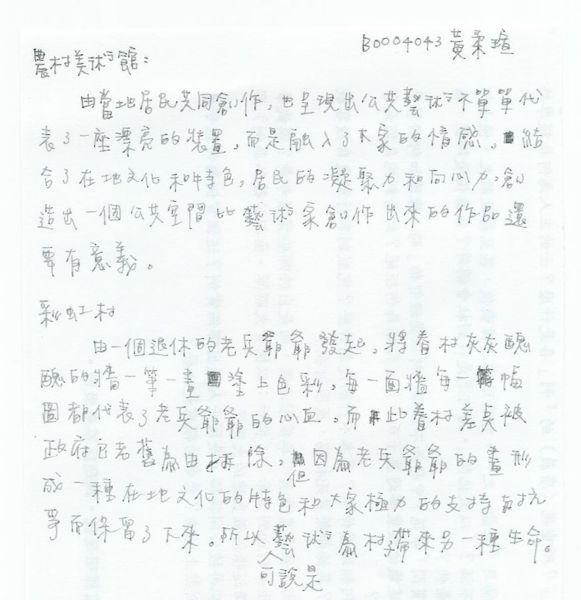 B0004043 黃柔瑄
農村美術館:
由當地居民共同創作,也呈現出公共藝術不單單代
表了一座漂亮的裝置,而是融入了大家的情感,結
合了在地文化和特色,居民的凝聚力和向心力,創
造出一個公共空間比藝術家創作出來的作品還
要有意義。
彩虹村
由一個退休的老兵爺爺發起,將眷村灰灰醜
醜的牆一筆一畫塗上色彩,每一面牆每一幅
圖都代表了老兵爺爺的心血。而此眷村差點被
政府以老舊為由拆除,但因為老兵爺爺的畫形
成一種在地文化的特色和大家極力的支持與抗
爭而保留了下來。所以藝術為村子帶來另一種生命。
可說是